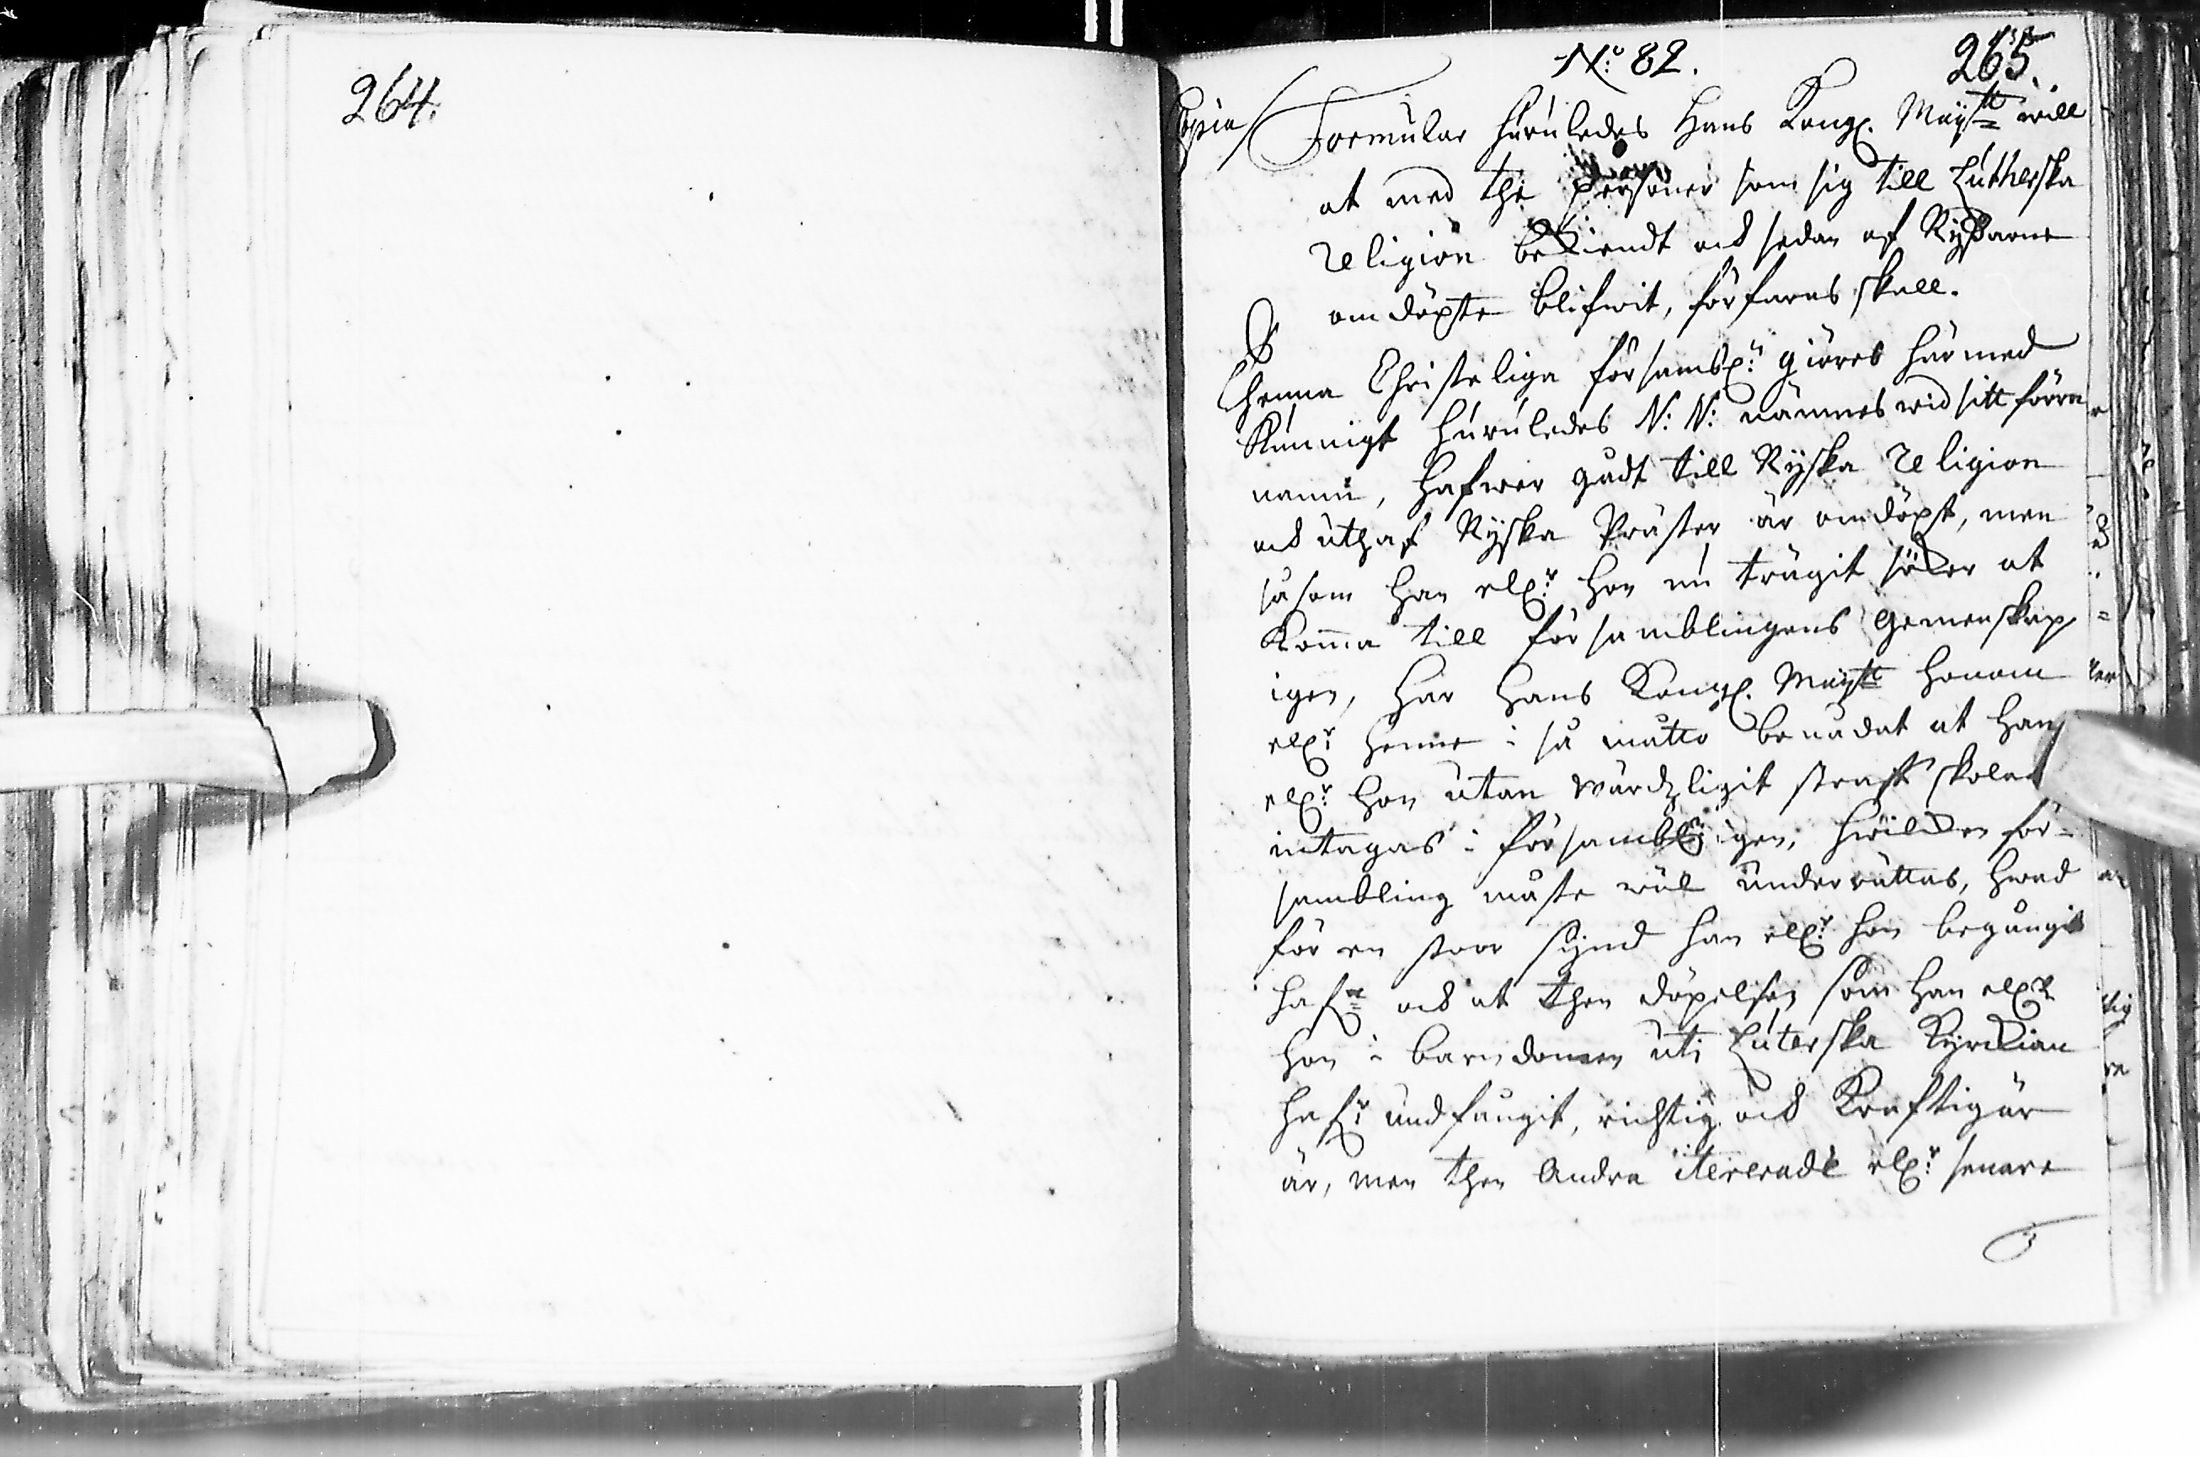 264.
N:o 82.
265.
Copia
Formular huruledes Hans Kongl. Maytt will
at med the personer som sig till Lutherska
religion bekiendt och sedan af Ryssarne
omdöpte blifwit, förfaras skall.
Thenna Christeliga försambl:n giöres härmed
kunnigt huruledes N: N: nämnes wid sitt förra
namn, hafwer gådt till Ryska religion
och uthaf Ryska Präster är omdöpt, men
såsom han ell:r hon nu trägit söker at
komma till församblingens gemenskap
igen, har Hans Kongl. Maytt honom
ell:r henne i så måtto benådat at han
ell:r hon utan wärdzligit straff skolat
intagas i försambl:n igen, hwilken för-
sambling måste wäl underrättas, hwad
för en stoor synd han ell:r hon begångit
haf:r och at then döpelsen som han ell:r
hon i barndomen uti Luterska Kyrckian
haf:r undfångit, richtig och krafftig är
är, men then andra itererade ell:r senare